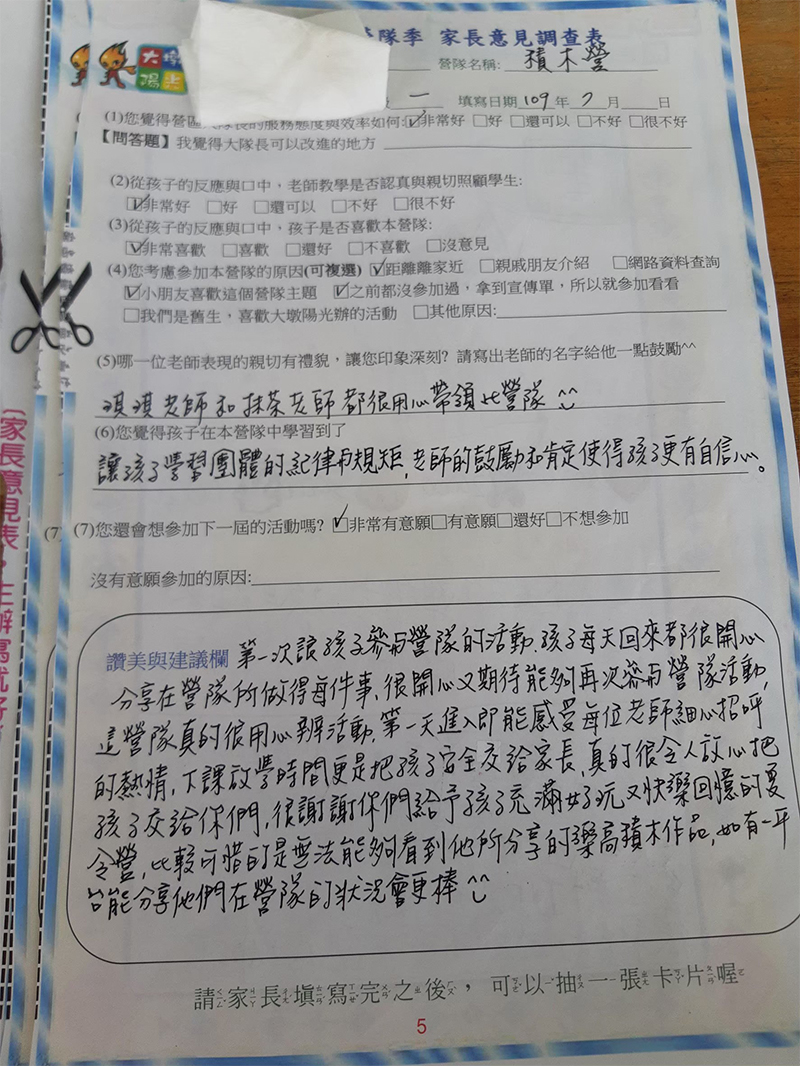 營隊季 家長意見調查表
大墩
陽光
營隊名稱: 積木營
一 填寫日期 109 年 7 月 日
(1)您覺得營區大隊長的服務態度與效率如何:☑非常好 □好 □還可以 □不好 □很不好
【問答題】我覺得大隊長可以改進的地方
(2)從孩子的反應與口中，老師教學是否認真與親切照顧學生:
☑非常好 □好 □還可以 □不好 □很不好
(3)從孩子的反應與口中，孩子是否喜歡本營隊:
☑非常喜歡 □喜歡 □還好 □不喜歡 □沒意見
(4)您考慮參加本營隊的原因(可複選) ☑距離離家近 □親戚朋友介紹 □網路資料查詢
☑小朋友喜歡這個營隊主題 ☑之前都沒參加過，拿到宣傳單，所以就參加看看
□我們是舊生，喜歡大墩陽光辦的活動 □其他原因:
(5)哪一位老師表現的親切有禮貌，讓您印象深刻? 請寫出老師的名字給他一點鼓勵^^
淇淇老師和抹茶老師都很用心帶領此營隊 ^^
(6)您覺得孩子在本營隊中學習到了
讓孩子學習團體的紀律與規矩,老師的鼓勵和肯定使得孩子更有自信心。
(7)
(7)您還會想參加下一屆的活動嗎? ☑非常有意願□有意願□還好□不想參加
沒有意願參加的原因:
讚美與建議欄 第一次讓孩子參與營隊的活動.孩子每天回來都很開心
分享在營隊所做得每件事、很開心又期待能夠再次參與營隊活動,
這營隊真的很用心辦活動.第一天進入即能感受每位老師細心招呼
的熱情,下課放學時間更是把孩子安全交給家長,真的很令人放心把
孩子交給你們,很謝謝你們給予孩子充滿好玩又快樂回憶的夏
令營,比較可惜的是無法能夠看到他所分享的樂高積木作品,如有一平
台能分享他們在營隊的狀況會更棒 ^^
請家長填寫完之後，可以抽一張卡片喔
5